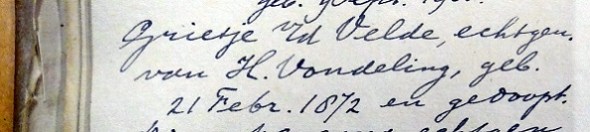 Grietje v/d Velde, echtgen.
van H. Vondeling, geb.
21 Febr. 1872 en gedoopt.